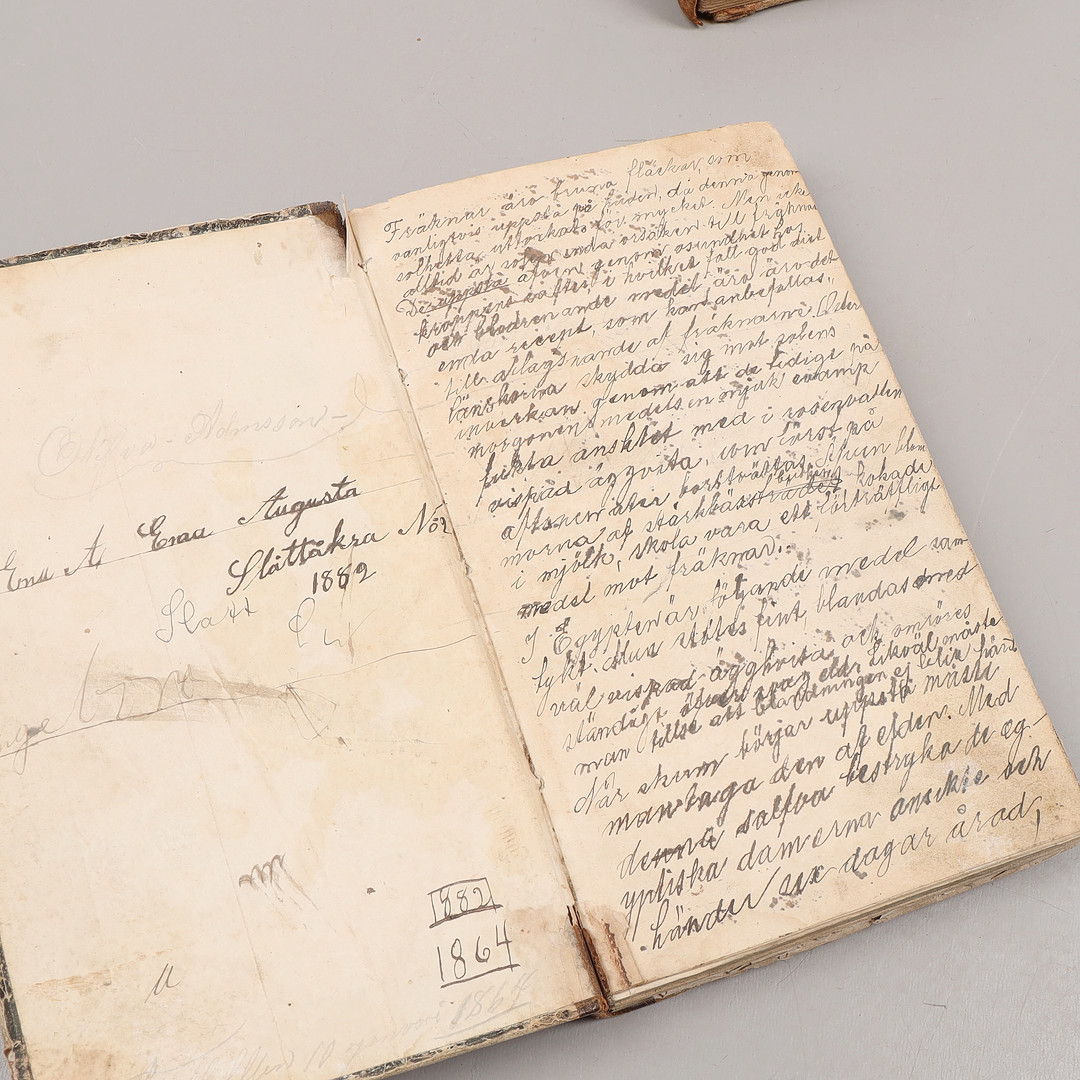 Ema A Ema Augusta
Slättåkra No 2
1882
Slatt
1882
1864
a
1864
Fräknar äro bruna fläckar, som
vanligtvis uppstå på huden, då denna genom
solhetta uttorkats för mycket. Men icke
alltid är solen enda orsaken till fräknar
De uppstå äfven genom osundhet hos
kroppens safter i hvilket fall god diet
och blodrenande medel äro äro det
enda recept, som kan anbefallas,
till aflägsnande af fräknarne. Outer
länskorna skydda sig mot solens
inverkan genom att de tidigt på
morgonen medels en mjuk svamp
fukta ansiktet med i rosenvatten
vispad äggvita, som torot på
aftonen åter borttvättas. Äfven blom
morna af stärkkässträdet kokade
i mjölk, skola vara ett förträffligt
medel mot fräknar.
I Egypten är följande medel sam
tykt. Alun stötes fint, blandas med
väl vispad ägghvita och omröres
ständigt öfver svag eld. Likväl måste
man tillse att blandningen ej blir hård
När skum börjar uppstå måste
man taga den af elden. Med
denna salfva bestryka de eg-
yptiska damerna ansikte och
händer sex dagar å rad,